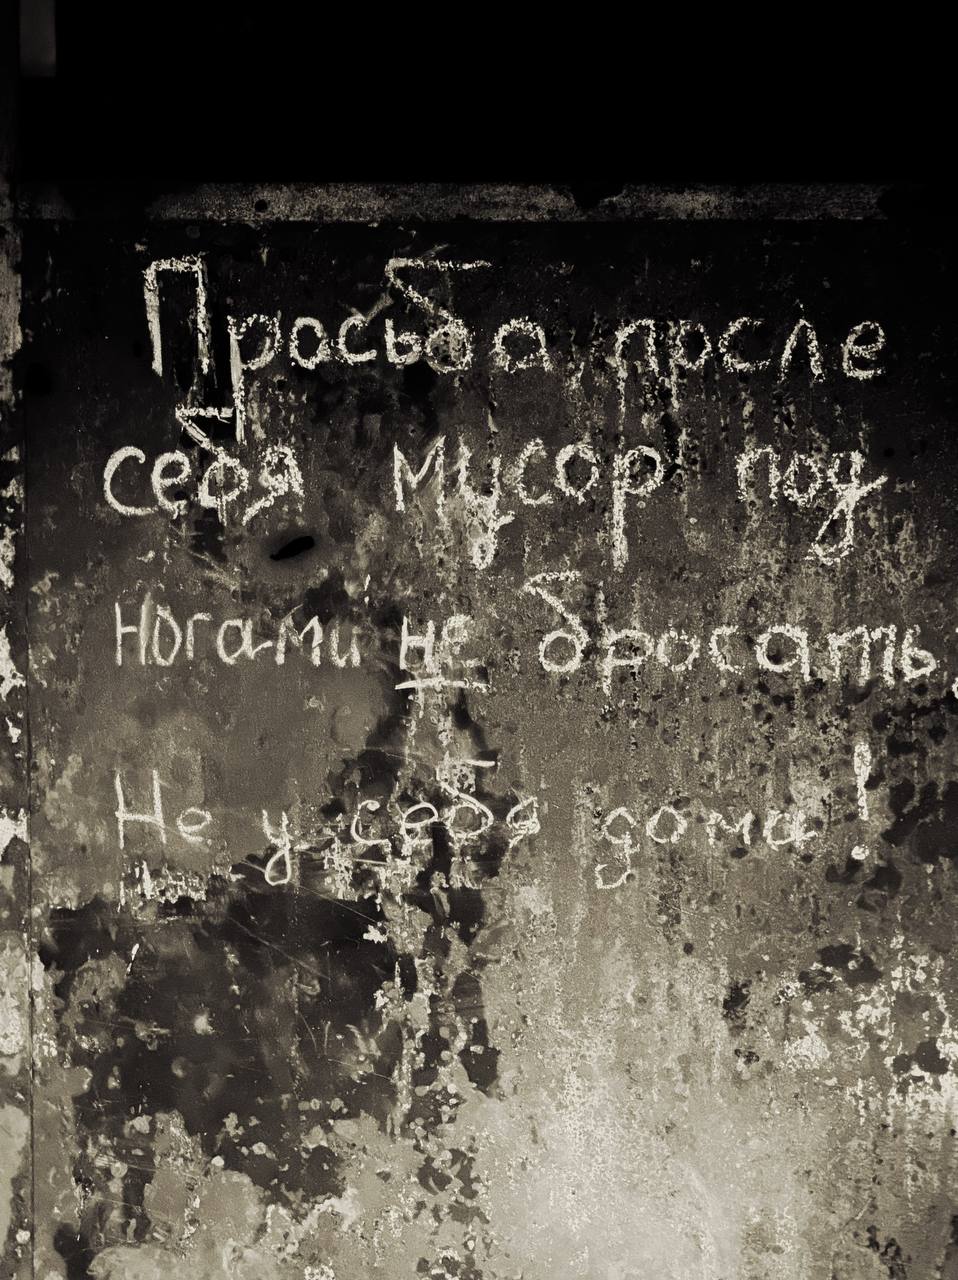 Просьба после
себя мусор под
Ногами не бросать.
Не у себя дома!